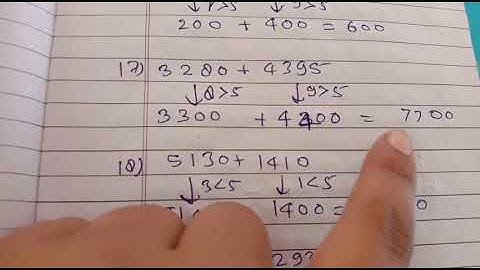 ↓8>5 ↓9>5
200 + 400 = 600
17) 3280 + 4395
↓8>5 ↓9>5
3300 + 4400 = 7700
18) 5130 + 1410
↓3<5 ↓1<5
1400 =